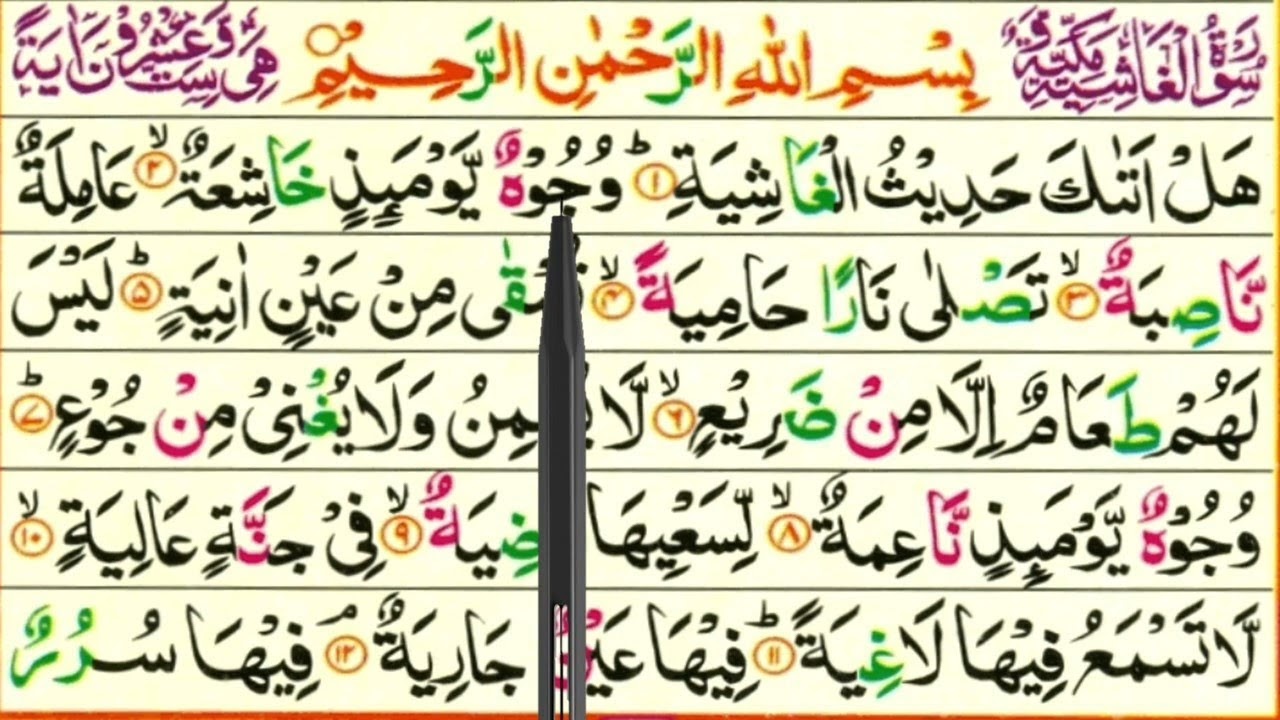 سُوْرَةُ الْغَاشِيَةِ مَكِّيَّةٌ وَّ بِسْمِ اللهِ الرَّحْمٰنِ الرَّحِيْمِ هِیَ سِتٌّ وَّعِشْرُوْنَ اٰيَةً
هَلْ اَتٰىكَ حَدِيْثُ الْغَاشِيَةِ ؕ ۱ وُجُوْهٌ يَّوْمَىِٕذٍ خَاشِعَةٌ ۙ ۲ عَامِلَةٌ
نَّاصِبَةٌ ۙ ۳ تَصْلٰى نَارًا حَامِيَةً ۙ ۴ مِنْ عَيْنٍ اٰنِيَةٍ ؕ ۵ لَيْسَ
لَهُمْ طَعَامٌ اِلَّا مِنْ ضَرِيْعٍ ۙ ۶ لَّا وَلَا يُغْنِىْ مِنْ جُوْعٍ ؕ ۷
وُجُوْهٌ يَّوْمَىِٕذٍ نَّاعِمَةٌ ۙ ۸ لِّسَعْيِهَا ضِيَةٌ ۙ ۹ فِىْ جَنَّةٍ عَالِيَةٍ ۙ ۱۰
لَّا تَسْمَعُ فِيْهَا لَاغِيَةً ؕ ۱۱ فِيْهَا عَيْنٌ جَارِيَةٌ ۘ ۱۲ فِيْهَا سُرُرٌ